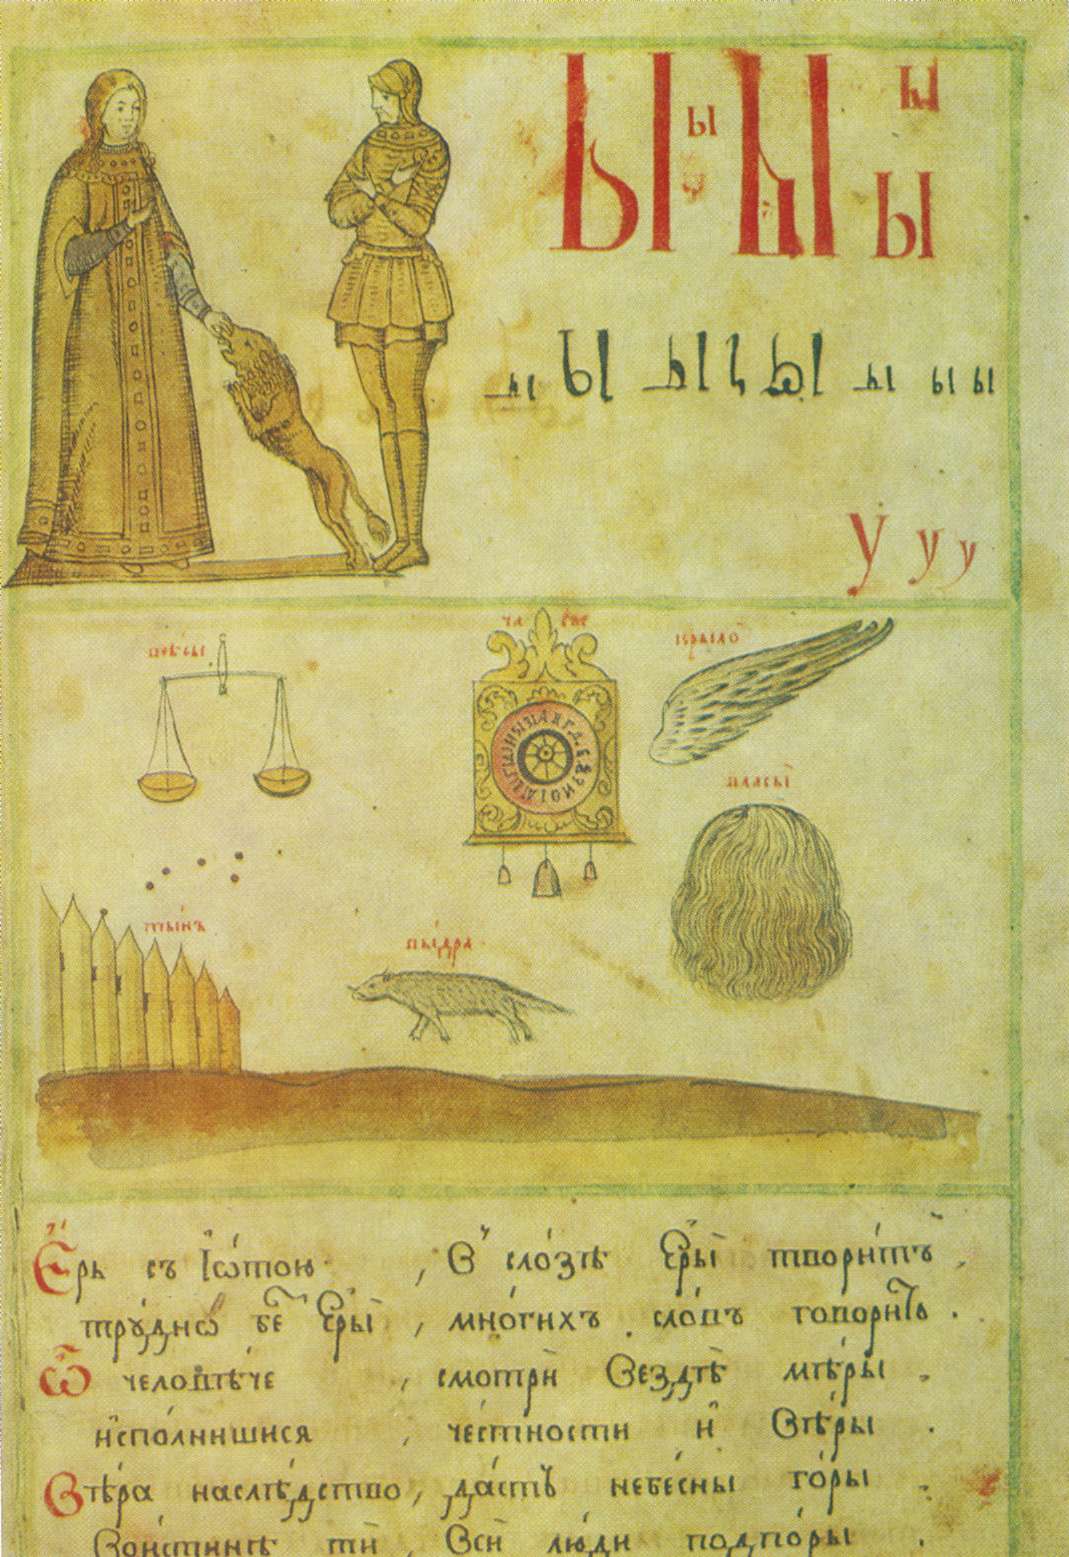 Ы ы Ы ы
ы
ы Ы Ы Ы ы ы ы
У у у
вѣсы
часы
крыло
власы
тынъ
выдра
Єрь съ Їѡ́тою , В сло́зѣ Єры̀ твори́тъ .
тру́днѡ бе Єры̀ , мно́гихъ сло́въ говори́ть .
Ѽ человѣ́че , смотрѝ Вездѣ̀ мѣ́ры .
и҆спо́лнишися , че́стности и҆ Вѣ́ры .
Вѣ́ра наслѣ́дство , да́стъ небе́сны го́ры .
Во́истинѣ ти̑ , Всѝ лю́ди подпо́ры .